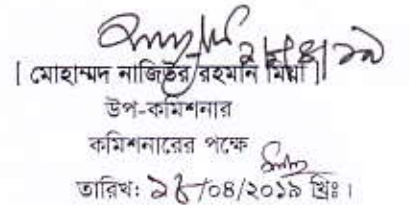 [ মোহাম্মদ নাজিউর রহমান মিয়া ]
উপ-কমিশনার
কমিশনারের পক্ষে
তারিখ: /০৪/২০১৯ খ্রিঃ।